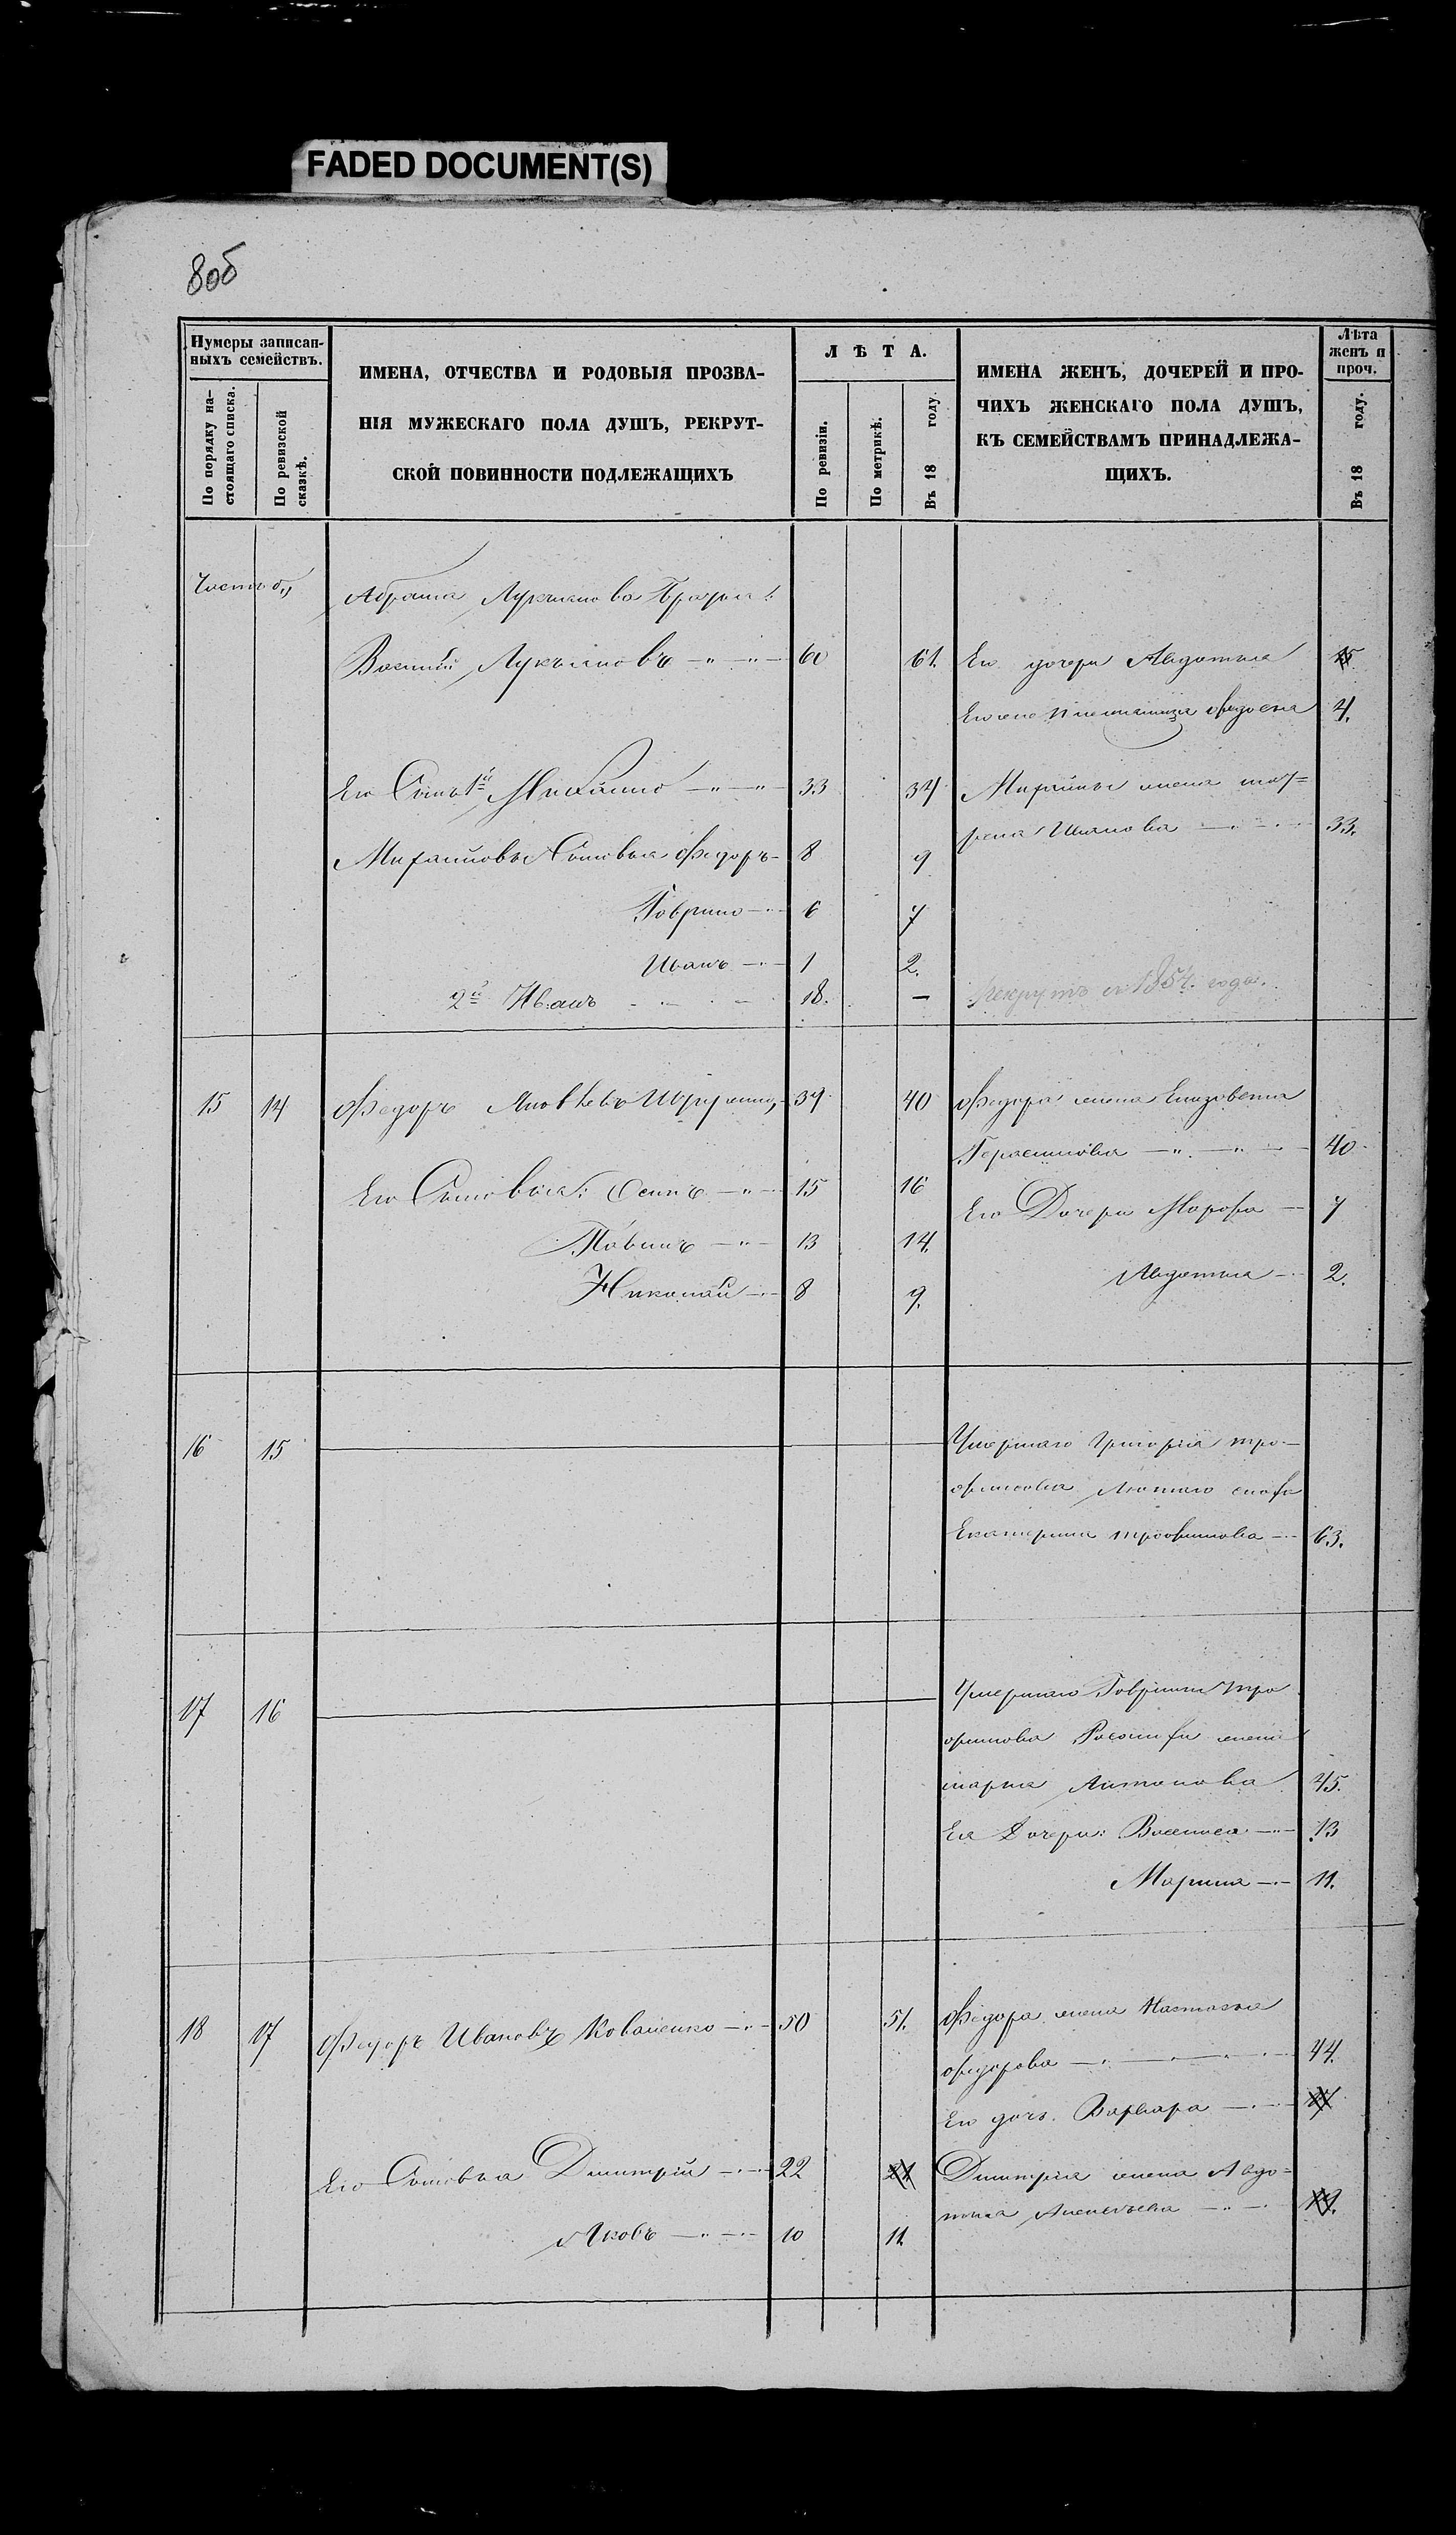 FADED DOCUMENT(S)
8об
Нумеры записан-
ныхъ семействъ.
По порядку на-
стоящаго списка.
По ревизской
сказкѣ.
ИМЕНА, ОТЧЕСТВА И РОДОВЫЯ ПРОЗВА-
НІЯ МУЖЕСКАГО ПОЛА ДУШЪ, РЕКРУТ-
СКОЙ ПОВИННОСТИ ПОДЛЕЖАЩИХЪ
ЛѢТА.
По ревизіи.
По метрикѣ.
Въ 18 году.
ИМЕНА ЖЕНЪ, ДОЧЕРЕЙ И ПРО-
ЧИХЪ ЖЕНСКАГО ПОЛА ДУШЪ,
КЪ СЕМЕЙСТВАМЪ ПРИНАДЛЕЖА-
ЩИХЪ.
Лѣта
женъ и
проч.
Въ 18 году.
Абрама Лукьянова Братья:
Василій Лукьяновъ 60 61. Его дочери Авдотья 15
племянница Федосья 4.
Его Сынъ 1й Михайло 33 34 Михайлы жена мот=
рена Иванова 33.
Михайловы Сыновья Федоръ 8 9
Гаврило 6 7
Иванъ 1 2.
2й Иванъ 18. — Рекрутъ 1854. года.
15 14 Федоръ Яковлевъ 39 40 Федора жена Елизовета
Герасимова 40
Его Сыновья: Осипъ 15 16 Его Дочери Марфа 7
Павилъ 13 14. Авдотья 2.
Николай 8 9.
16 15 Умершаго Григорія тро-
фимова Лютаго сноха
Екатерина трофимова 63.
17 16 Умершаго Гаврилы тро
фимова жена
марья Антонова 45.
Ея Дочери: Василиса 13
Марина 11.
18 17 Федоръ Ивановъ Коваленко 50 51. Федора жена Настасья
федорова 44.
Его дочь Варвара
Его Сыновья Димитрій 22 Димитрія жена Авдо=
тья
Яковъ 10 11.